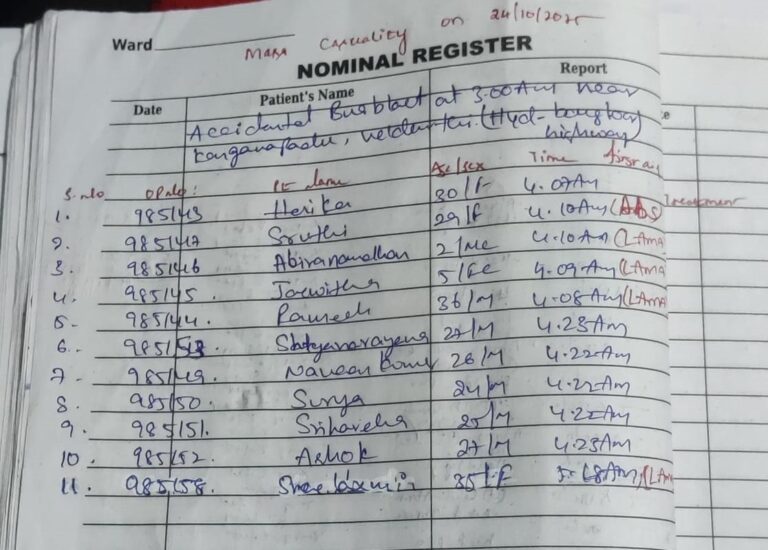 Ward
Mass Casuality on 24/10/2025
NOMINAL REGISTER
Date Patient's Name Report
Accidental Bus blast at 3.00 Am near
(Hyd-
highway)
S.no OP.No: Pt Name Age/sex Time
1. 985143 Harika 30/F 4.07Am
2. 985147 Sruthi 29/F 4.10Am treatment
3. 985146 2/Mc 4.10Am (LAMA
4. 985145. 5/Fc 4.09Am (LAMA
5. 985144. Rameesh 36/M 4.08Am (LAMA
6. 985153. Satyanarayana 27/M 4.23Am
7. 985149. Naveen Kumar 26/M 4.22Am
8. 985150. Surya 24/M 4.22Am
9. 985151. Sriharsha 25/M 4.22Am
10. 985152. Ashok 27/M 4.23Am
11. 985158. 35/F (LAM